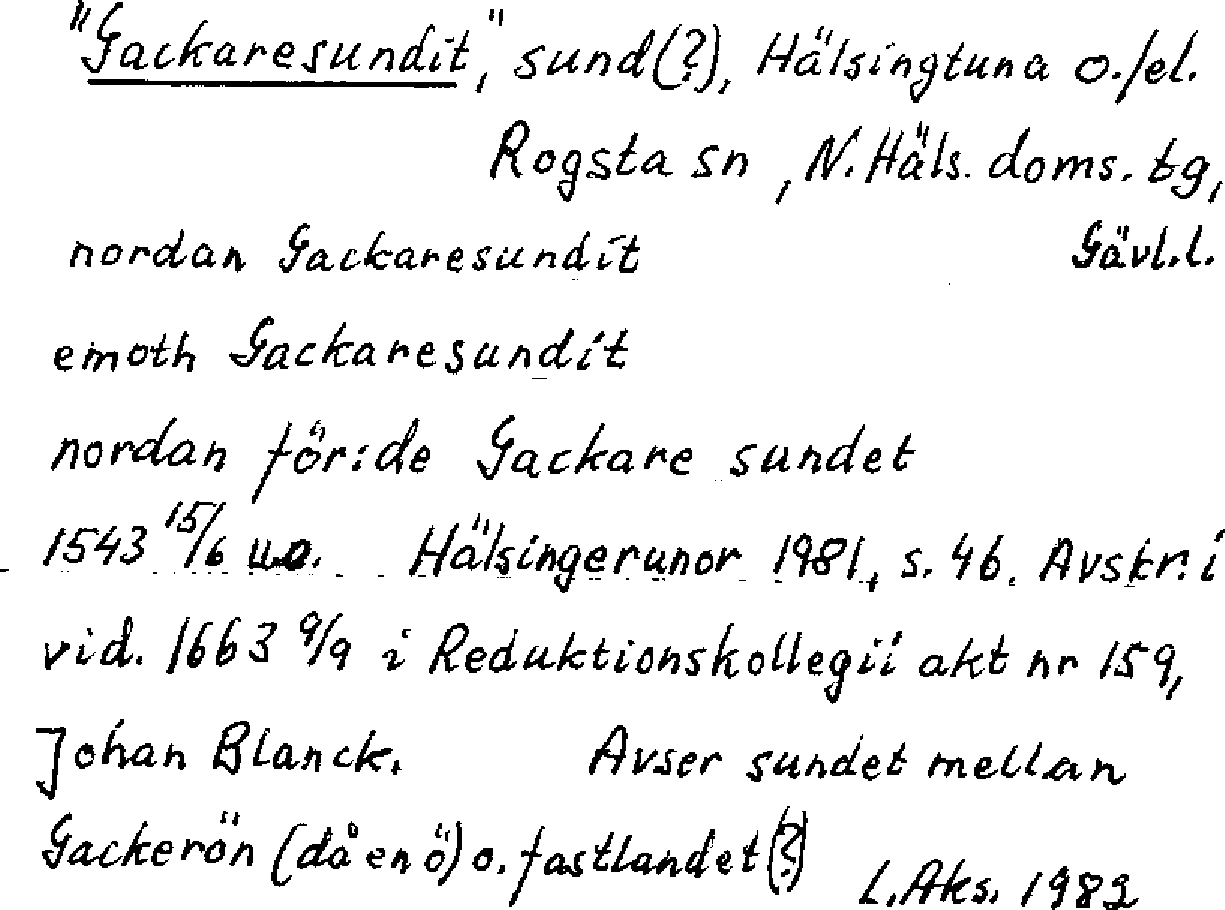 "Gackaresundit," sund(?), Hälsingtuna o./el.
Rogsta sn, N. Häls. doms. tg,
nordan Gackaresundit Gävl.l.
emoth Gackaresundit
nordan för:de Gackare sundet
1543 15/6 u.o. Hälsingerunor 1981, s. 46. Avskr. i
vid. 1663 9/9 i Reduktionskollegii akt nr 159,
Johan Blanck. Avser sundet mellan
Gackerön (då en ö) o. fastlandet (?)
L. Aks. 1982